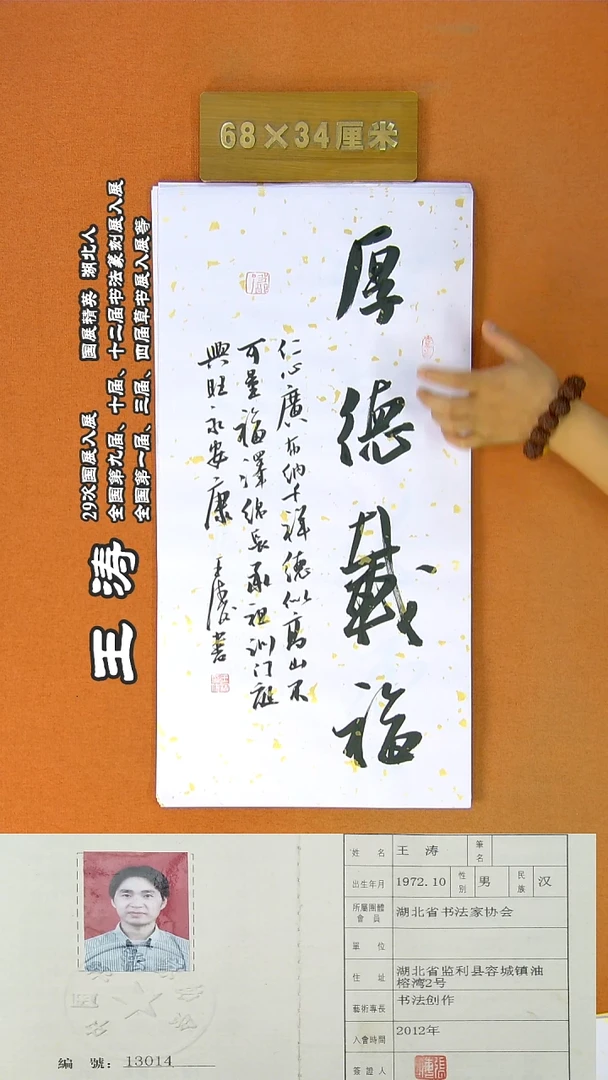 68×34厘米
厚德载福
仁心廣布纳千祥德似高山不
可量福澤绵长承祖训门庭
興旺永安康
王涛书
王涛
29次国展入展 国展精英 湖北人
全国第九届、十届、十二届书法篆刻展入展
全国第一届、三届、四届草书展入展等
姓名 王涛 筆名
出生年月 1972.10 性别 男 民族 汉
所屬團體會員 湖北省书法家协会
單位
住址 湖北省监利县容城镇油榕湾2号
藝術專長 书法创作
入會時間 2012年
簽證人
編號：13014